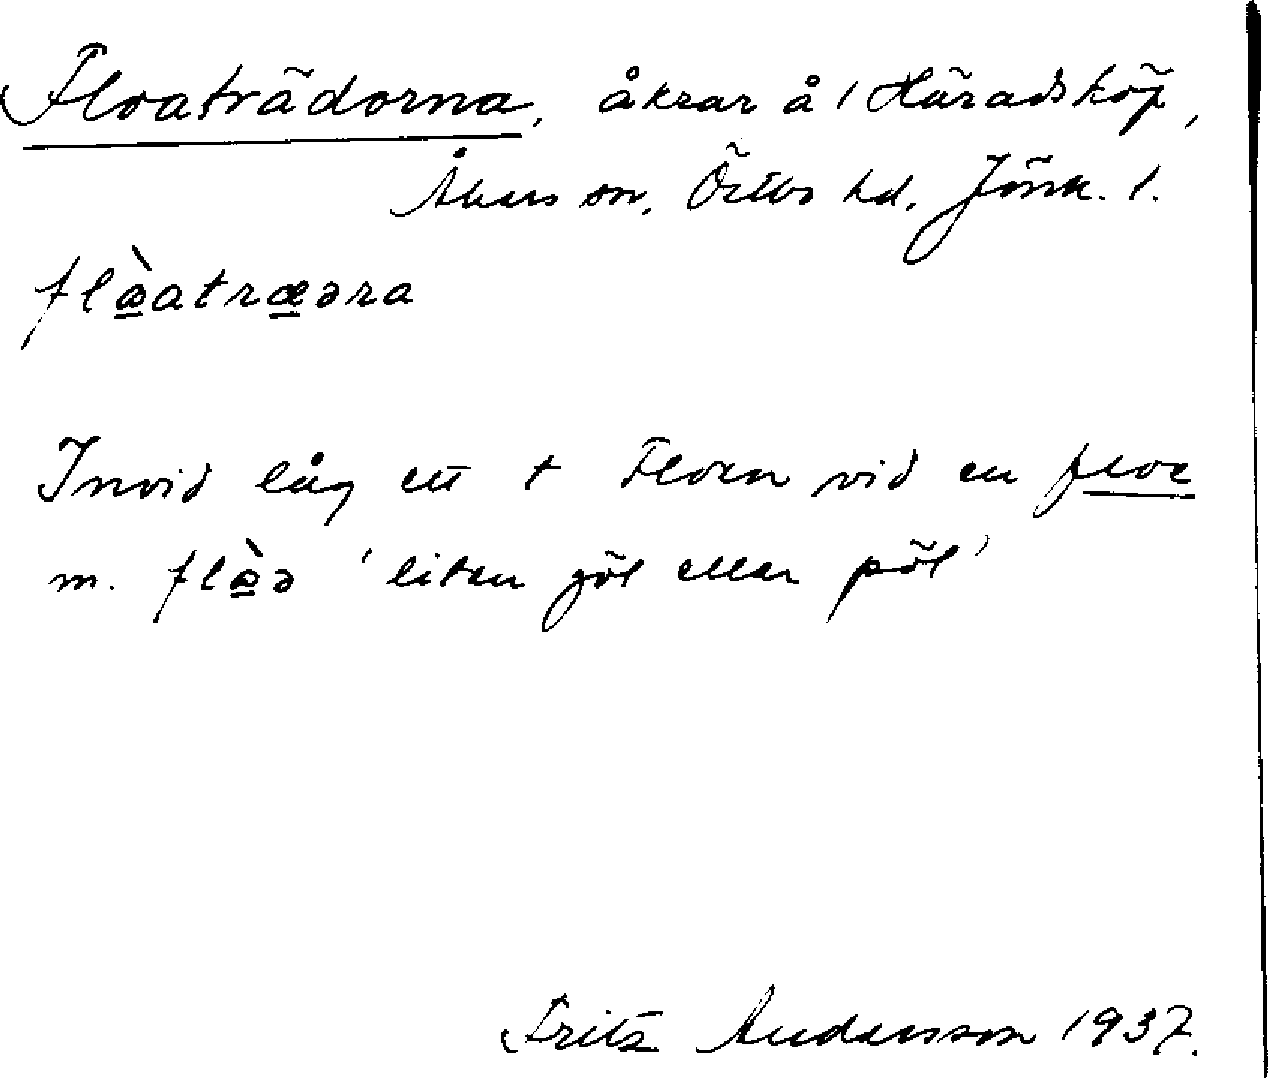 Floaträdorna, åkrar å 1 Häradsköp,
Åkers sn, Östbo hd, Jönk. l.
flæ̀atræəra
Invid låg ett † Floen vid en floe
m. flæ̀ə 'liten göl eller pöl'
Fritz Andersson 1937.